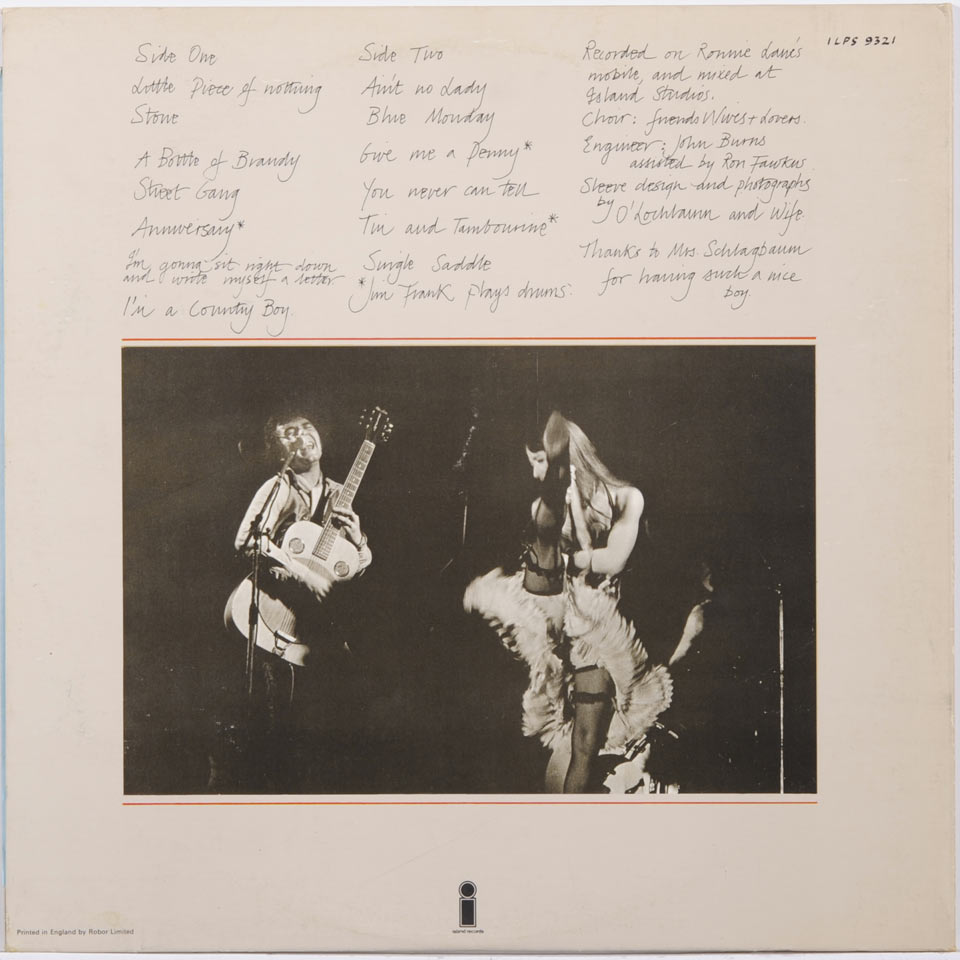 Side One
Little Piece of nothing
Stone
A Bottle of Brandy
Street Gang
Anniversary*
I'm gonna sit right down
and write myself a letter
I'm a Country Boy.
Side Two
Ain't no Lady
Blue Monday
Give me a Penny*
You never can tell
Tin and Tambourine*
Single Saddle
*Jim Frank plays drums.
Recorded on Ronnie Lane's
mobile, and mixed at
Island Studios.
Choir: friends Wives + Lovers.
Engineer: John Burns
assisted by Ron Fawkus
Sleeve design and photographs
by O'Lochlainn and Wife
Thanks to Mrs. Schlagbaum
for having such a nice
boy.
ILPS 9321
island records
Printed in England by Robor Limited